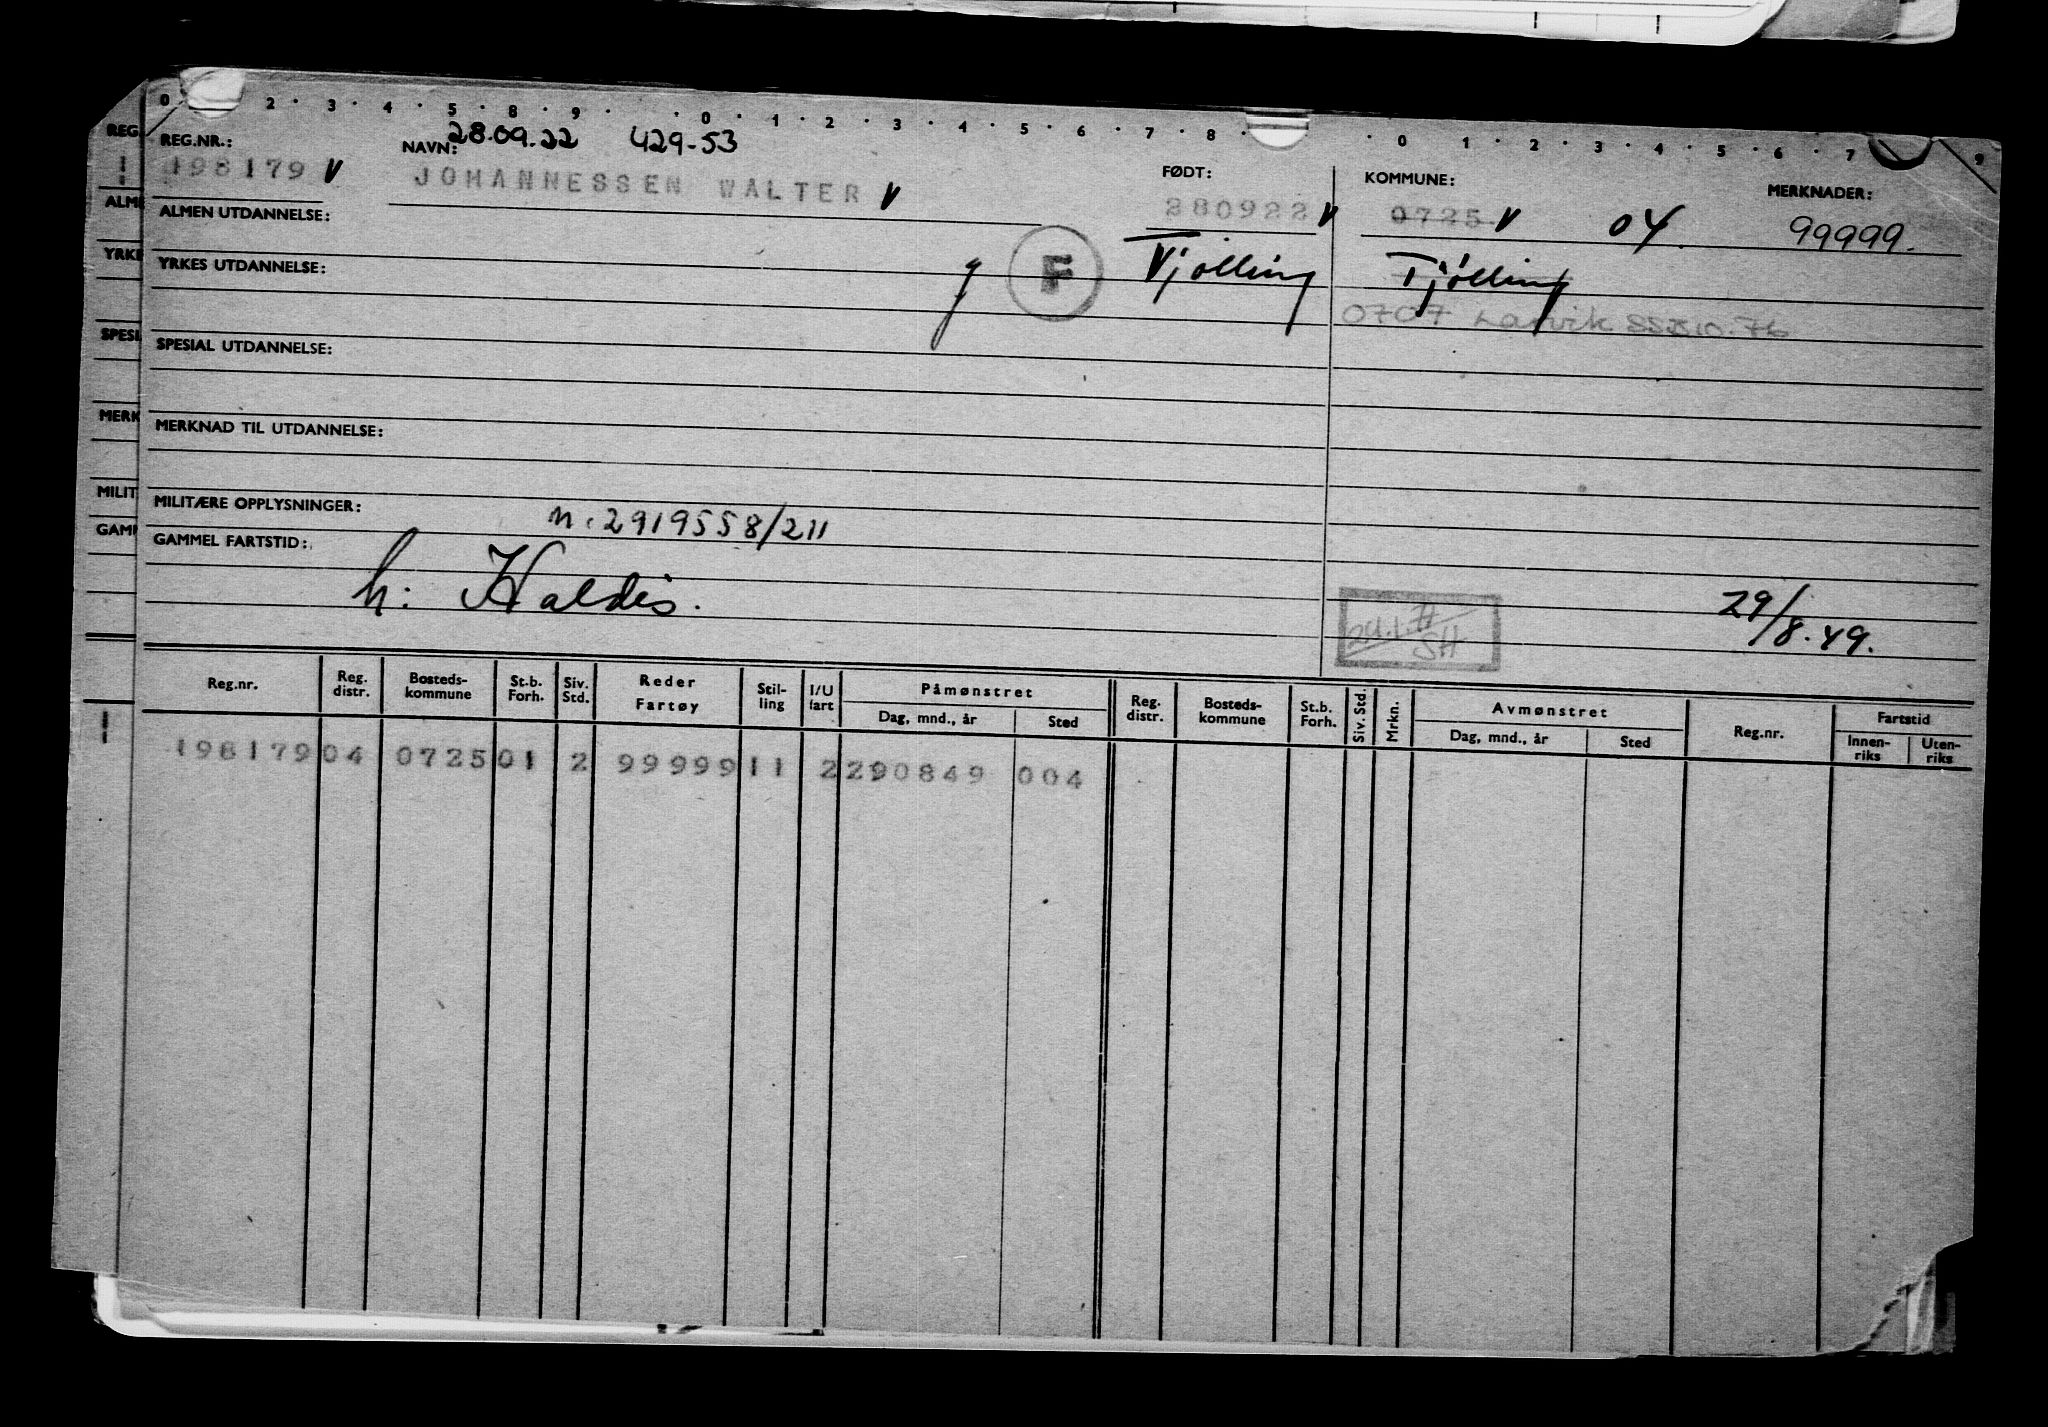 0 2 · 3 · 4 · 5 · 8 · 9 · · 0 · 1 · 2 · 3 · 4 · 5 · 6 · 7 · 8 · 0 · 1 · 2 · 3 · 4 · 5 · 6 · 7 9
28.09.22 429-53
REG.NR.: NAVN: FØDT: KOMMUNE: MERKNADER:
198179 V JOHANNESSEN WALTER V 280922 V 0725 V 04. 99999.
ALMEN UTDANNELSE:
g F Tjølling Tjølling
YRKES UTDANNELSE:
0707 Larvik SSB 10.76
SPESIAL UTDANNELSE:
MERKNAD TIL UTDANNELSE:
MILITÆRE OPPLYSNINGER: n. 2919558/211
GAMMEL FARTSTID:
h: Haldis. 29/8.49.
SH
Reg.nr. Reg. distr. Bosteds-kommune St.b. Forh. Siv. Std. Reder Fartøy Stil-ling I/U fart Påmønstret Dag, mnd., år Sted Reg. distr. Bosteds-kommune St.b. Forh. Siv. Std. Mrkn. Avmønstret Dag, mnd., år Sted Reg.nr. Fartstid Innen-riks Uten-riks
198179 04 0725 01 2 99999 11 2 290849 004
REG
ALM
YRKE
SPESI
MERK
MILIT
GAM